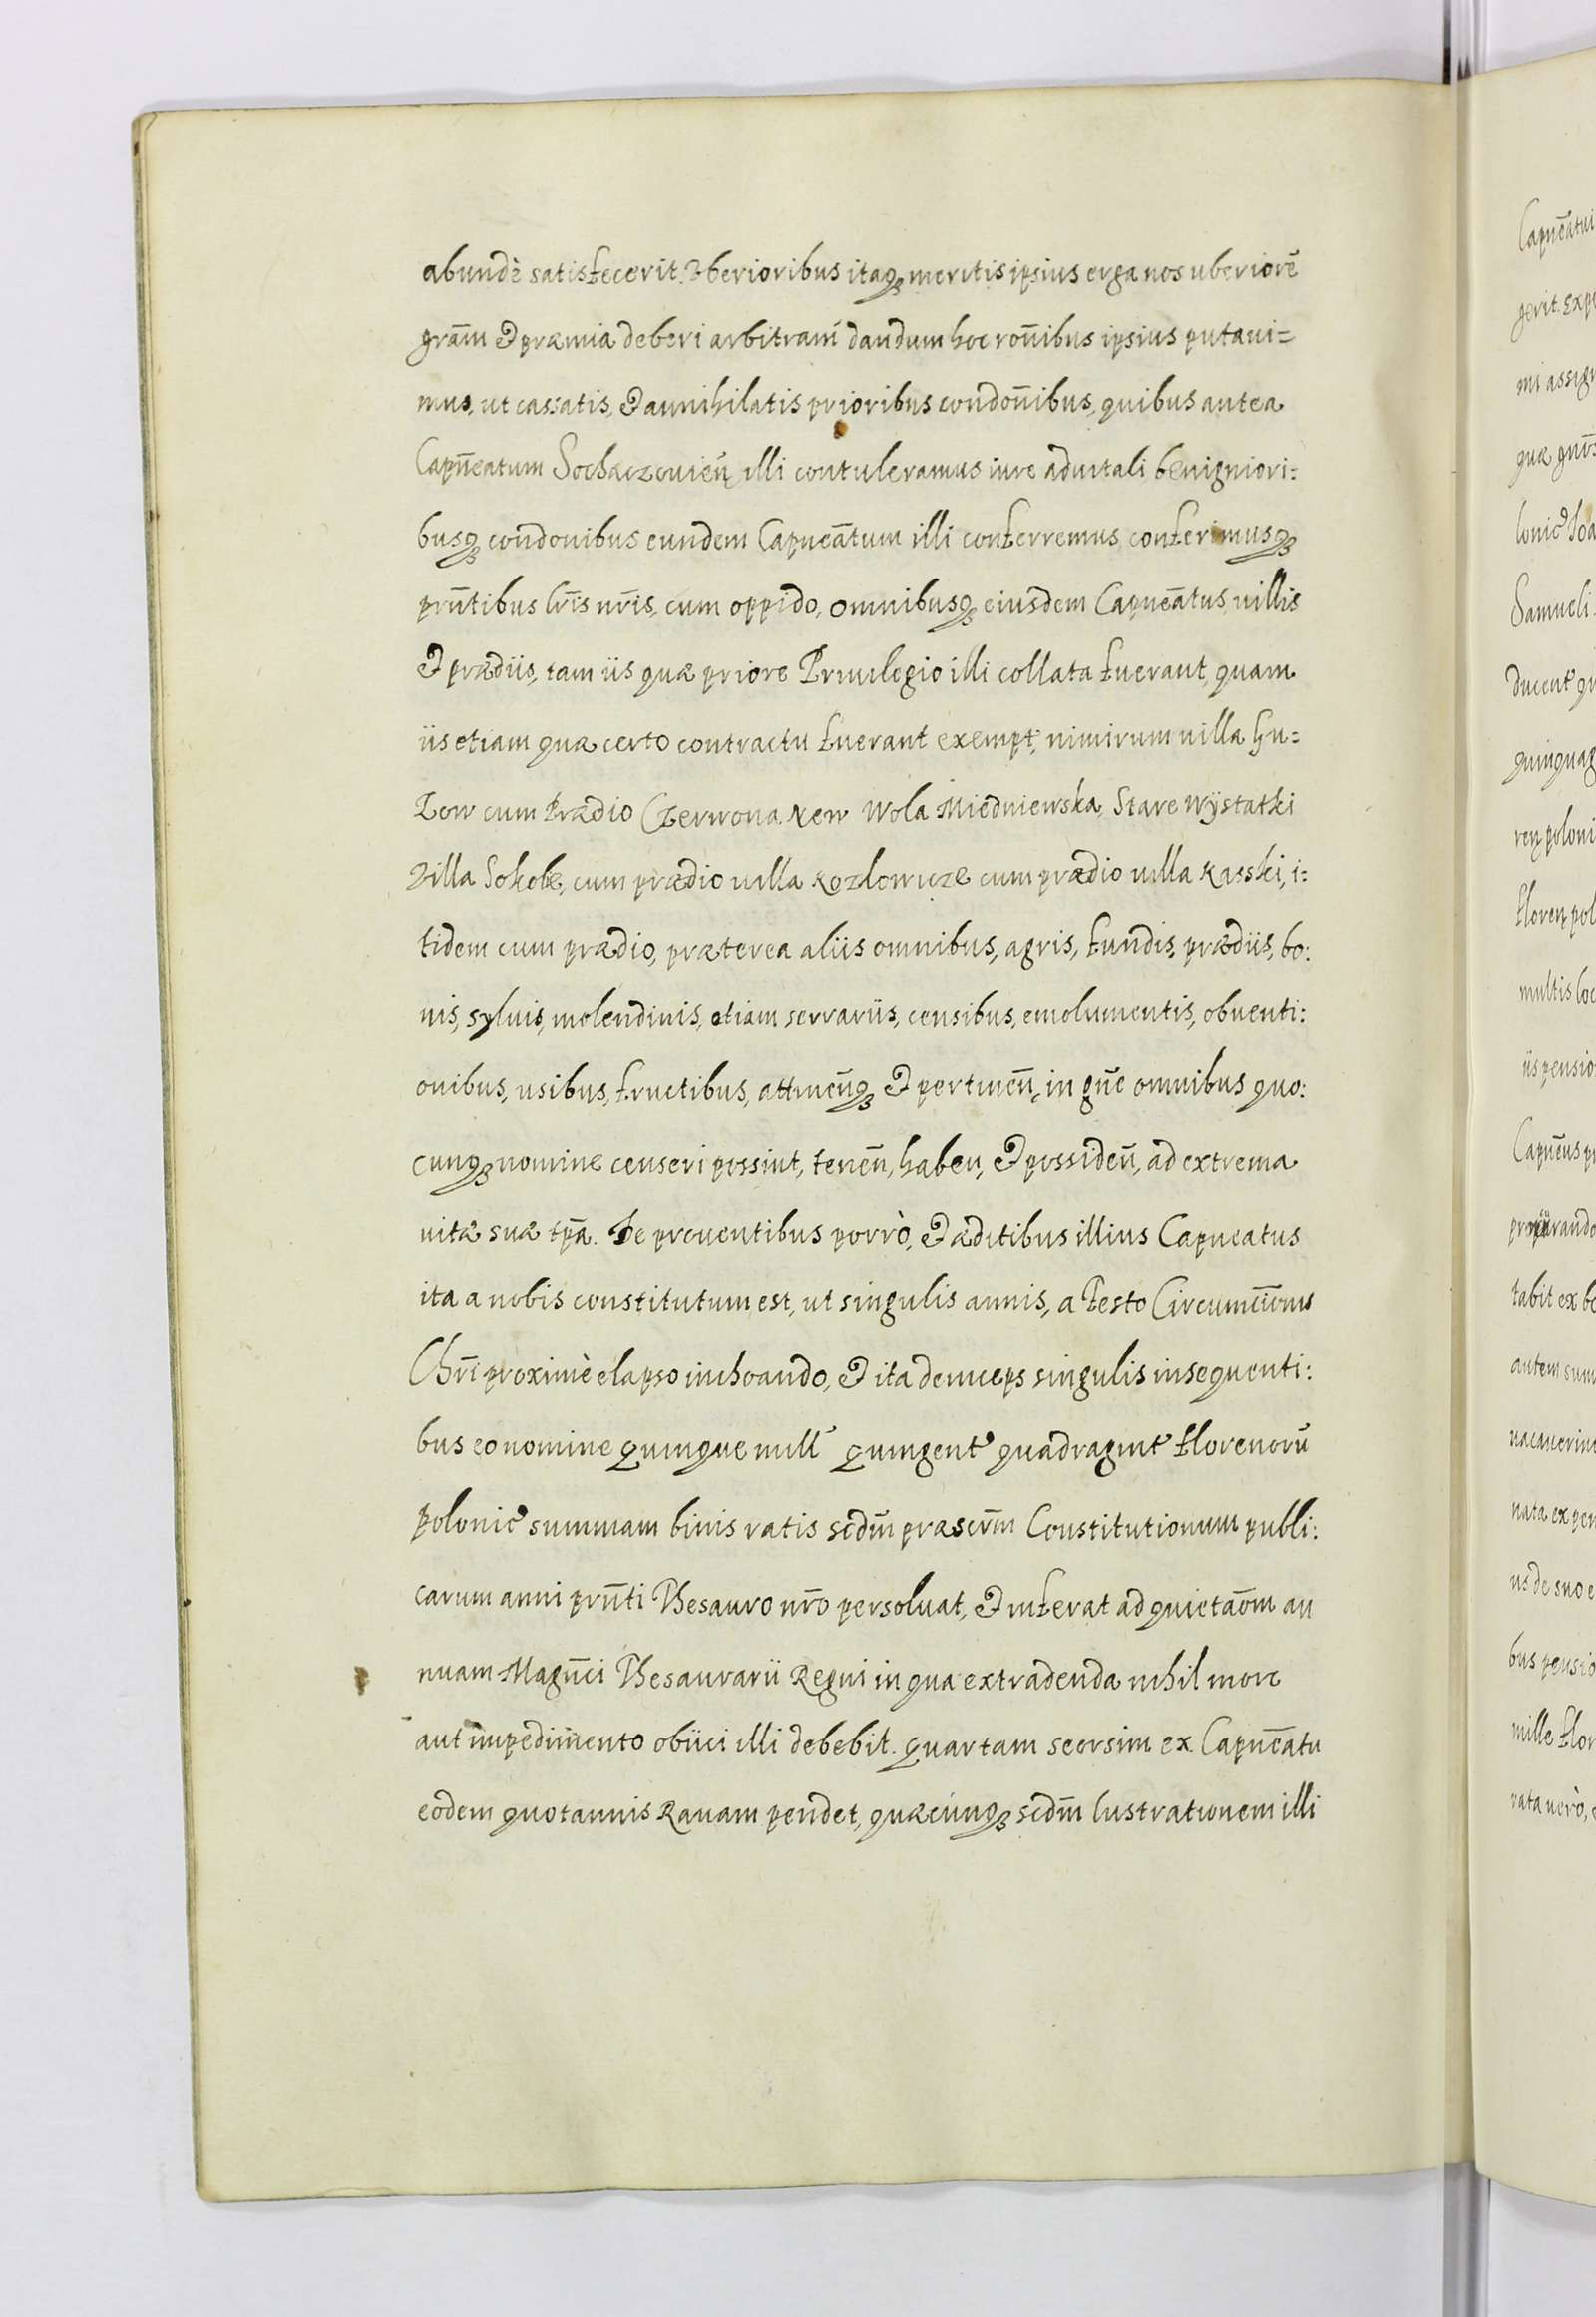 abundè satisfecerit. Vberioribus itaqȝ meritis ipsius erga nos uberiorē
gram̄ & præmia deberi arbitrati dandum hoc ron̄ibus ipsius putaui=
mus, ut cassatis, & annihilatis prioribus condon̄ibus, quibus antea
Capn̄eatum Sochaczouień illi contuleramus iure aduitali benigniori:
busqȝ condonibus eundem Capneātum illi conferremus, conferimusqȝ
prn̄tibus lr̄is nr̄is, cum oppido, omnibusqȝ eiusdem Capneātus, uillis
& prædiis, tam iis quæ priore Priuilegio illi collata fuerant, quam
iis etiam quæ certo contractu fuerant exempt, nimirum uilla Gu=
zow cum Prædio Czerwona New Wola Miedniewska, Stare Wÿstatki
Villa Sokole, cum prædio uilla Kozłowicze cum prædio uilla Kasski, i:
tidem cum prædio, præterea aliis omnibus, agris, fundis, prædiis, bo:
nis, syluis, molendinis, etiam serrariis, censibus, emolumentis, obuenti:
onibus, usibus, fructibus, attinen̄qȝ & pertinen̄, in gn̄e omnibus quo:
cunqȝ nomine censeri possint, tenen̄, haben, & possiden̄, ad extrema
uitæ suæ tp̄a. De prouentibus porrò, & æditibus illius Capneatus
ita a nobis constitutum est, ut singulis annis, a Festo Circumc̄ionis
Chr̄i proximè elapso inchoando, & ita deinceps singulis insequenti:
bus eo nomine Quinque mill Quingent quadragint florenorū
polonic summam binis ratis scdm̄ præscrm̄ Constitutionum publi:
carum anni prn̄ti Thesauro nr̄o persoluat, & inferat ad quietāom an
nuam Magn̄ci Thesaurarii Regni in qua extradenda nihil moræ
aut impedimento obiici illi debebit. Quartam seorsim ex Capnēatu
eodem quotannis Rauam pendet, quæcunqȝ scdm̄ lustrationem illi